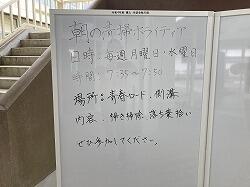 朝の清掃ボランティア
日時：毎週月曜日・水曜日
時間：7:35〜7:50
場所：青春ロード、側溝
内容：掃き掃除、落ち葉拾い
ぜひ参加してください。